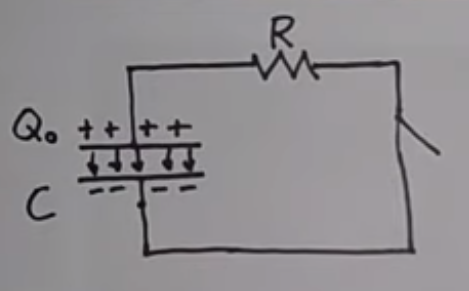 R
Q₀ + + + +
C
− − − −